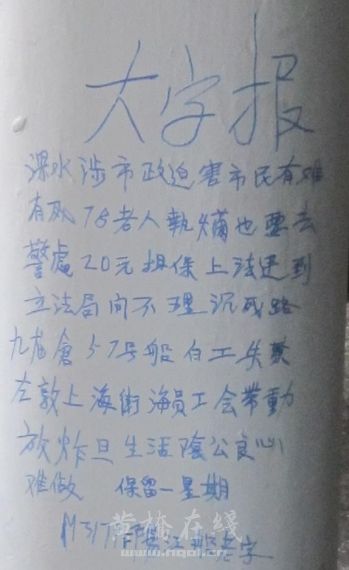 大字报
深水涉市政迫害市民有难
有死78老人執爛也要去
警處20元担保上法廷到
立法局问不理沉成路
九龙倉57号船白工失業
左敦上海街海员工会带動
放炸旦生活陰公良心
难做 保留一星期
M317 江
黄橋在线
www.hqol.cn